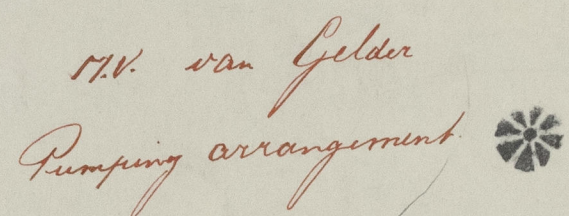 M.V. van Gelder
Pumping arrangement.